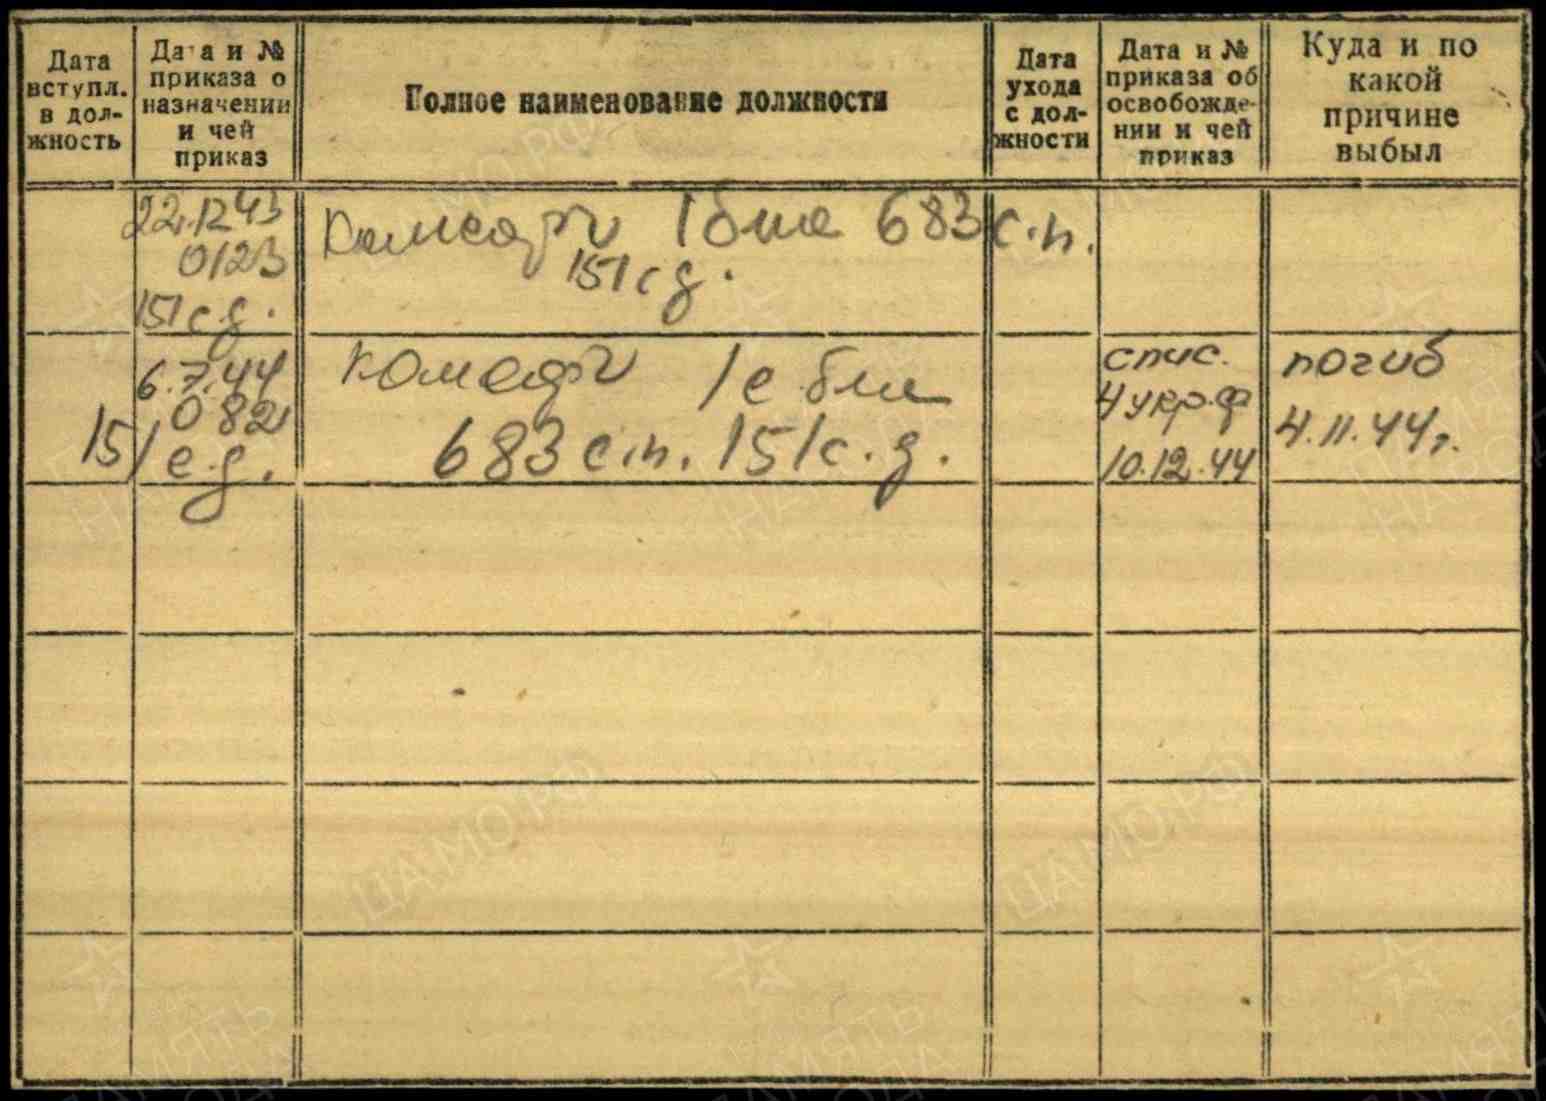 Дата
вступл.
в дол-
жность
Дата и №
приказа о
назначении
и чей
приказ
Полное наименование должности
Дата
ухода
с дол-
жности
Дата и №
приказа об
освобожде-
нии и чей
приказ
Куда и по
какой
причине
выбыл
22.12.43
0123
151 с д.
1 683 с.п.
151 с д.
6.7.44
082
151 с.д.
683 с.п. 151 с.д.
спис.
4 укр.ф
10.12.44
погиб
4.11.44г.
ЦАМО.РФ
ЦАМО.РФ
ЦАМО.РФ
ЦАМО.РФ